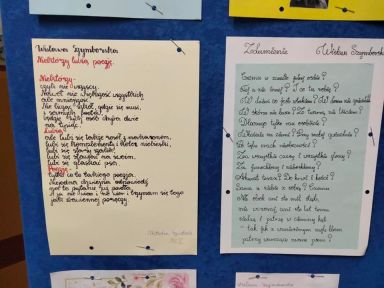 Wisława Szymborska
Niektórzy lubią poezję.
Niektórzy -
czyli nie wszyscy.
Nawet nie większość wszystkich
ale mniejszość.
Nie licząc szkół, gdzie się musi,
i samych poetów,
będzie tych osób chyba dwie
na tysiąc.
Lubią -
ale lubi się także rosół z makaronem,
lubi się komplementy i kolor niebieski,
lubi się stary szalik,
lubi się stawiać na swoim,
lubi się głaskać psa.
Poezję -
tylko co to takiego poezja.
Niejedna chwiejna odpowiedź
na to pytanie już padła.
A ja nie wiem i nie wiem i trzymam się tego
jak zbawiennej poręczy.
Zdumienie Wisława Szymborska
Czemu w zanadto jednej osobie?
Tej a nie innej? I co tu robię?
W dzień co jest wtorkiem? W domu nie gnieździe?
W skórze nie łusce? Z twarzą nie liściem?
Dlaczego tylko raz osobiście?
Właśnie na ziemi? Przy małej gwieździe?
Po tylu erach nieobecności?
Za wszystkie czasy i wszystkie glony?
Za jamochłony i nieboskłony?
Akurat teraz? Do krwi i kości?
Sama u siebie z sobą? Czemu
nie obok ani sto mil stąd,
nie wczoraj ani sto lat temu
siedzę i patrzę w ciemny kąt
- tak jak z wzniesionym nagle łbem
patrzy warczące zwane psem?